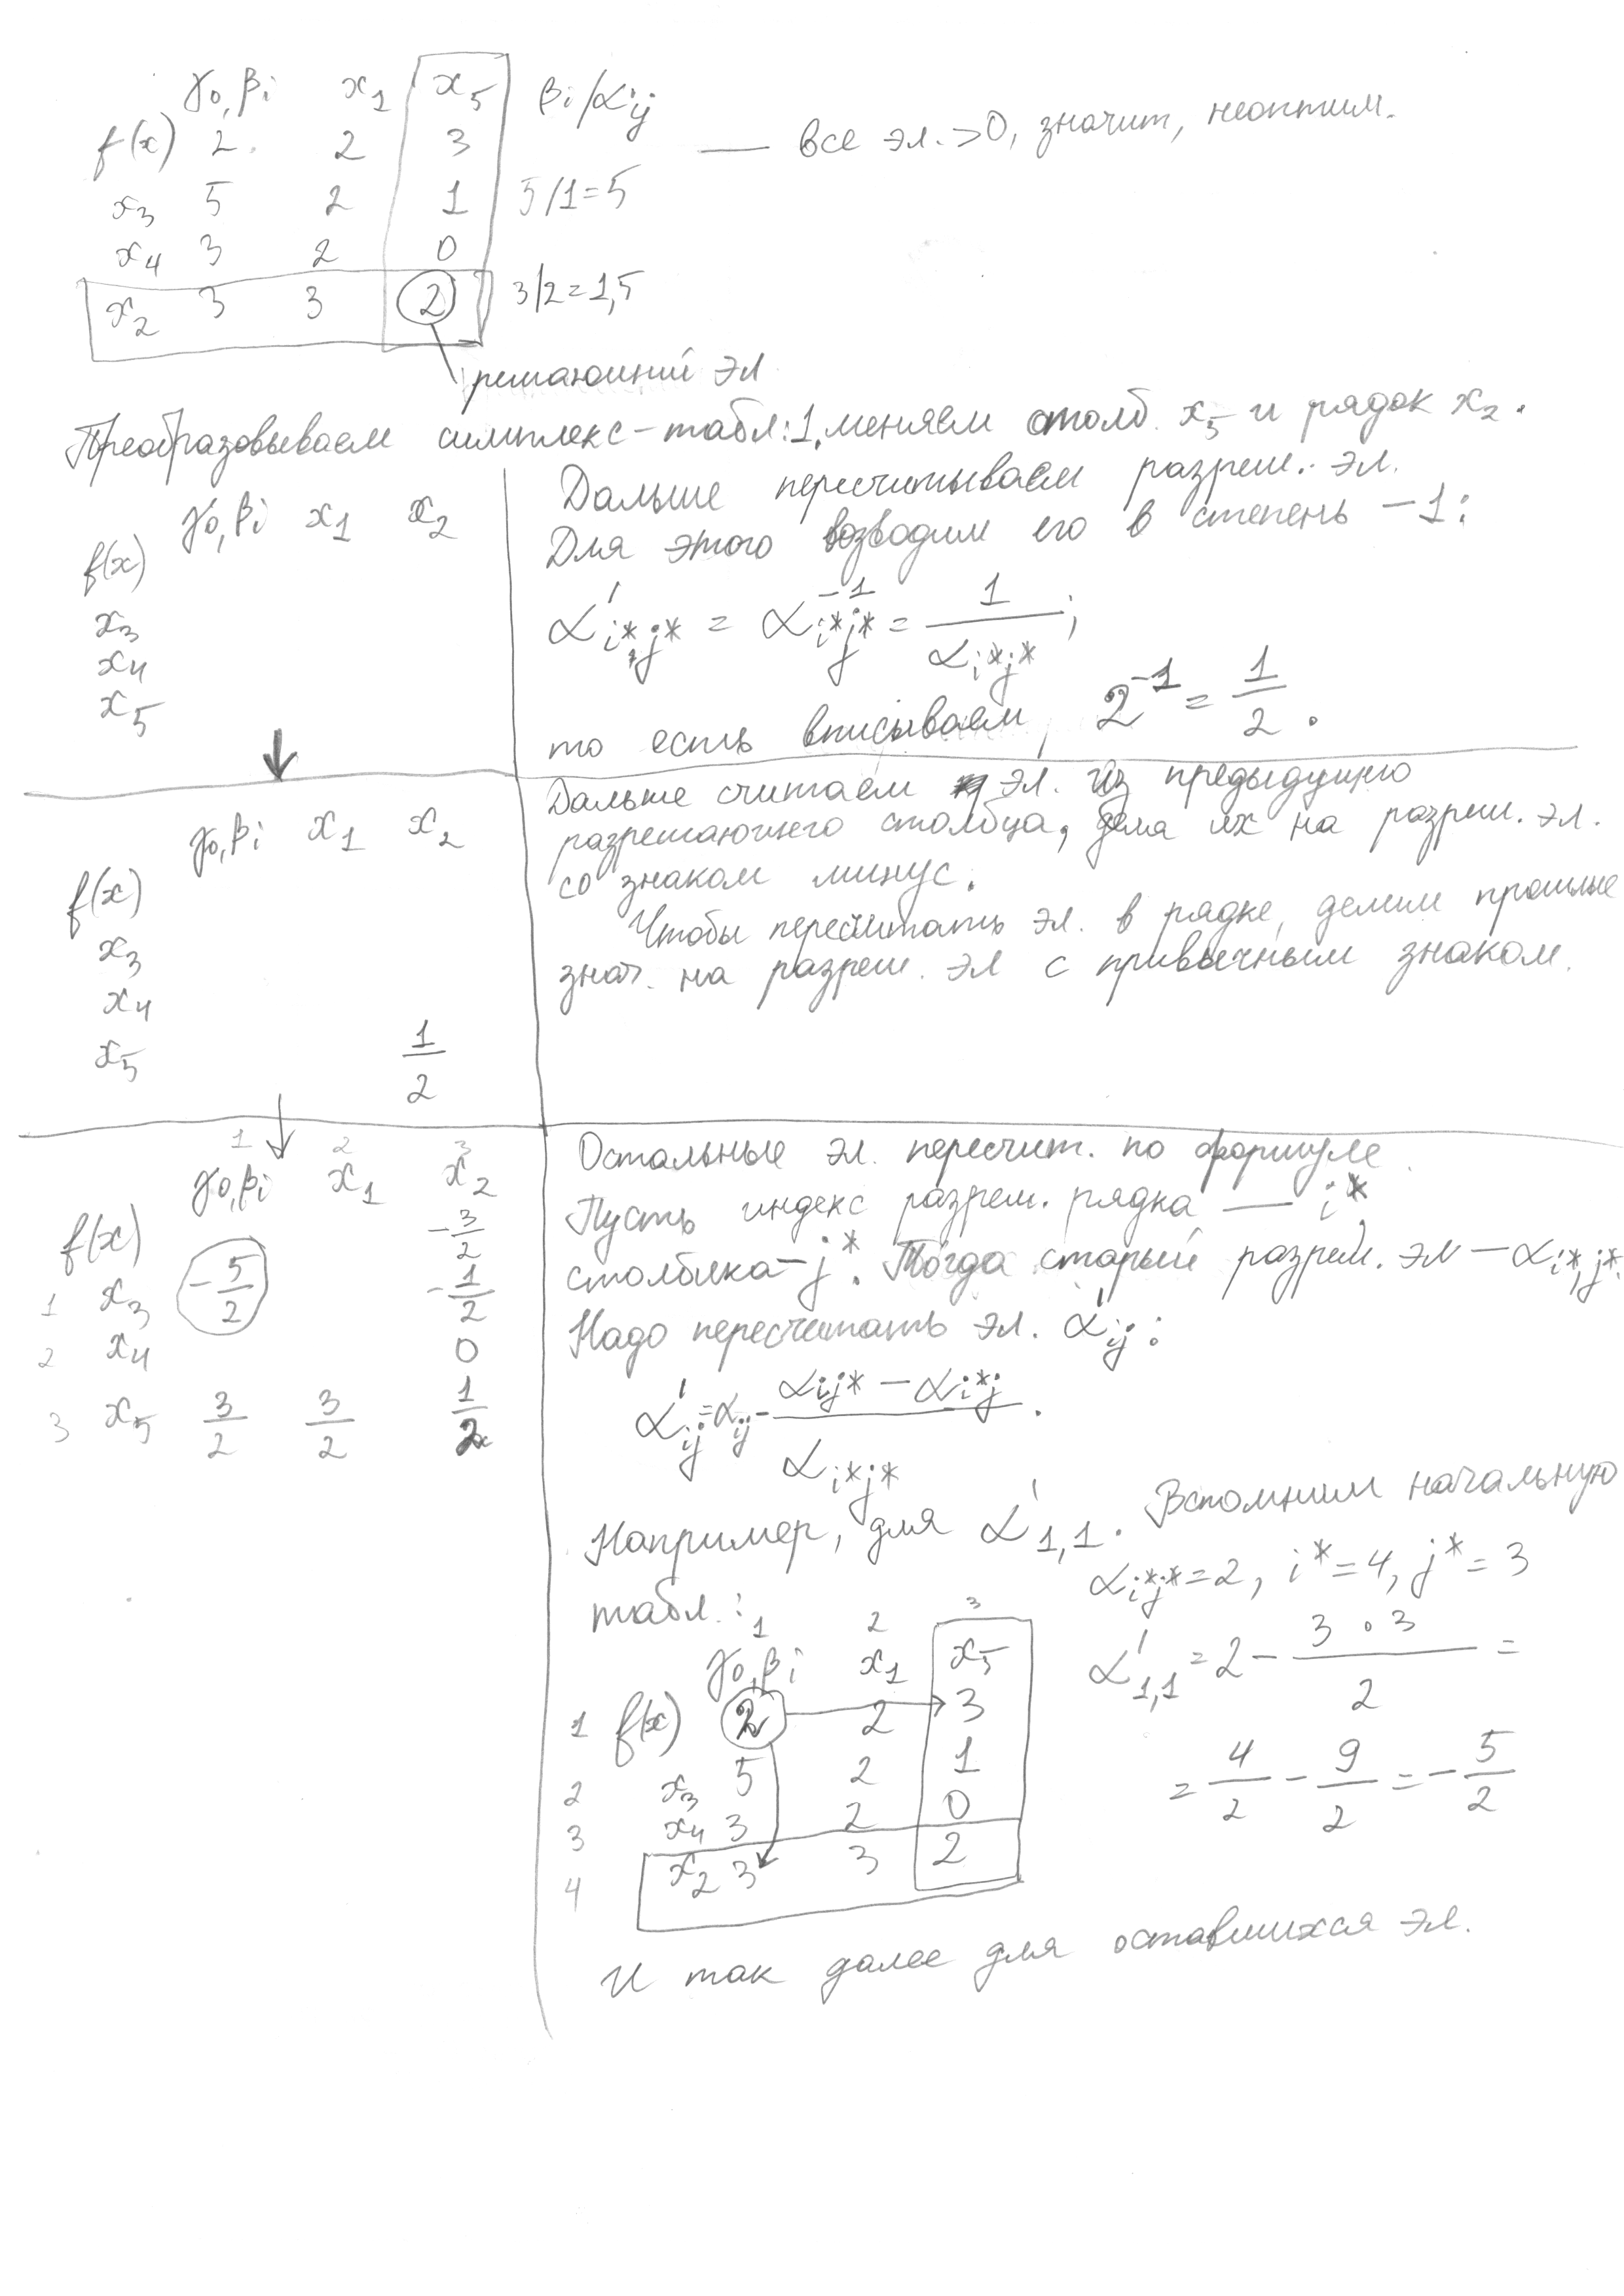 γ₀,βᵢ x₁ x₅ βᵢ/αᵢⱼ
f(x) 2 2 3 — все эл. >0, значит, неоптим.
x₃ 5 2 1 5/1=5
x₄ 3 2 0
x₂ 3 3 2 3/2=1,5
решающий эл
Преобразовываем симплекс-табл: 1. меняем столб. x₅ и рядок x₂.
γ₀,βᵢ x₁ x₂
f(x)
x₃
x₄
x₅
Дальше пересчитываем разреш. эл.
Для этого возводим его в степень -1:
α'ᵢ*,ⱼ* = αᵢ*ⱼ*⁻¹ = 1/αᵢ*ⱼ*;
то есть вписываем 2⁻¹ = 1/2.
γ₀,βᵢ x₁ x₂
f(x)
x₃
x₄
x₅ 1/2
Дальше считаем эл. из предыдущего
разрешающего столбца, деля их на разреш. эл.
со знаком минус.
Чтобы пересчитать эл. в рядке, делим прошлые
знач. на разреш. эл с привычным знаком.
1 2 3
γ₀,βᵢ x₁ x₂
f(x) -3/2
1 x₃ -5/2 -1/2
2 x₄ 0
3 x₅ 3/2 3/2 1/2
Остальные эл. пересчит. по формуле.
Пусть индекс разреш. рядка — i*
столбика - j*. Тогда старый разреш. эл — αᵢ*,ⱼ*.
Надо пересчитать эл. α'ᵢⱼ:
α'ᵢⱼ = αᵢⱼ - (αᵢⱼ* - αᵢ*ⱼ)/αᵢ*ⱼ*.
Например, для α'₁,₁. Вспомним начальную
табл.:
αᵢ*ⱼ* = 2, i* = 4, j* = 3
1 2 3
γ₀,βᵢ x₁ x₅
1 f(x) 2 2 3
2 x₃ 5 2 1
3 x₄ 3 2 0
4 x₂ 3 3 2
α'₁,₁ = 2 - 3∘3/2 =
= 4/2 - 9/2 = -5/2
И так далее для оставшихся эл.